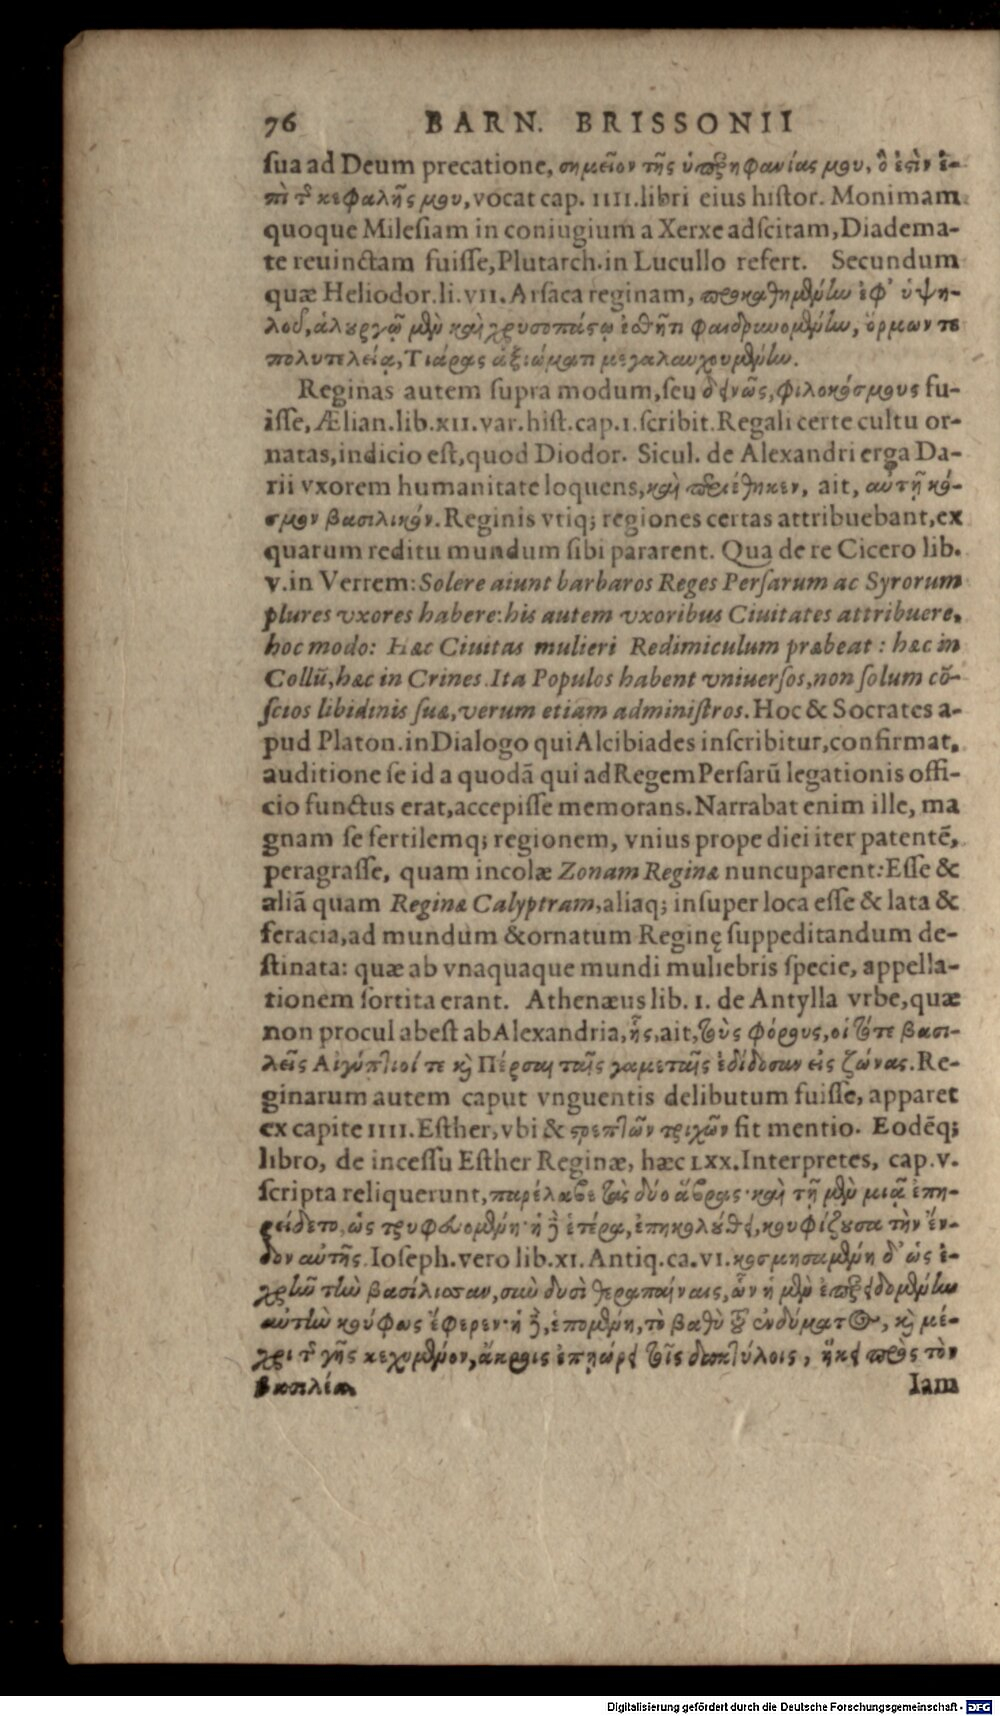 76 BARN. BRISSONII
ſua ad Deum precatione, σημεῖον τῆς ὑπερηφανίας μου, ὅ ἐστιν ἐ-
πὶ τ̃ κεφαλῆς μου, vocat cap. IIII. libri eius hiſtor. Monimam
quoque Mileſiam in coniugium a Xerxe adſcitam, Diadema-
te reuinctam fuiſſe, Plutarch. in Lucullo refert. Secundum
quæ Heliodor. li. VII. Arſaca reginam, προκαθημένην ἐφ' ὑψη-
λοῦ, ἁλουργῷ μὲν καὶ χρυσοπάστῳ ἐσθῆτι φαιδρυνομένην, ὅρμων τε
πολυτελείᾳ, Τιάρας ἀξιώματι μεγαλαυχουμένην.
Reginas autem ſupra modum, ſeu δεινῶς, φιλοκόσμους fu-
iſſe, Ælian. lib. XII. var. hiſt. cap. I. ſcribit. Regali certe cultu or-
natas, indicio eſt, quod Diodor. Sicul. de Alexandri erga Da-
rii vxorem humanitate loquens, καὶ περιέθηκεν, ait, αὐτῇ κό-
σμον βασιλικόν. Reginis vtiq; regiones certas attribuebant, ex
quarum reditu mundum ſibi pararent. Qua de re Cicero lib.
V. in Verrem: Solere aiunt barbaros Reges Perſarum ac Syrorum
plures vxores habere: his autem vxoribus Ciuitates attribuere,
hoc modo: Hæc Ciuitas mulieri Redimiculum præbeat: hæc in
Collũ, hæc in Crines. Ita Populos habent vniuerſos, non ſolum cõ-
ſcios libidinis ſuæ, verum etiam adminiſtros. Hoc & Socrates a-
pud Platon. in Dialogo qui Alcibiades inſcribitur, confirmat,
auditione ſe id a quodã qui ad Regem Perſarũ legationis offi-
cio functus erat, accepiſſe memorans. Narrabat enim ille, ma
gnam ſe fertilemq; regionem, vnius prope diei iter patentẽ,
peragraſſe, quam incolæ Zonam Reginæ nuncuparent: Eſſe &
aliã quam Reginæ Calyptram, aliaq; inſuper loca eſſe & lata &
feracia, ad mundum & ornatum Reginę ſuppeditandum de-
ſtinata: quæ ab vnaquaque mundi muliebris ſpecie, appella-
tionem ſortita erant. Athenæus lib. I. de Antylla vrbe, quæ
non procul abeſt ab Alexandria, ἧς, ait, τοὺς φόρους, οἱ τότε βασι-
λεῖς Αἰγύπτιοί τε κỳ Πέρσαι ταῖς γαμεταῖς ἐδίδοσαν εἰς ζώνας. Re-
ginarum autem caput vnguentis delibutum fuiſſe, apparet
ex capite IIII. Eſther, vbi & στρεπτῶν τριχῶν fit mentio. Eodẽq;
libro, de inceſſu Eſther Reginæ, hæc LXX. Interpretes, cap. V.
ſcripta reliquerunt, παρέλαβε τὰς δύο ἅβρας· καὶ τῇ μὲν μιᾷ ἐπη-
ρείδετο, ὡς τρυφευομένη· ἡ δὲ ἑτέρα, ἐπηκολούθει, κουφίζουσα τὴν ἔν-
δον αὐτῆς. Ioſeph. vero lib. XI. Antiq. ca. VI. κοσμησαμένη δ' ὡς ἐ-
χρῆν τὴν βασίλισσαν, σὺν δυσὶ θεραπαίναις, ὧν ἡ μὲν ἐπερειδομένην
αὐτὴν κούφως ἔφερεν· ἡ δὲ, ἑπομένη, τὸ βαθὺ τοῦ ἐνδύματος, κỳ μέ-
χρι τ̃ γῆς κεχυμένον, ἄκροις ἐπῃώρει τοῖς δακτύλοις, ἧκε πρὸς τὸν
βασιλέα. Iam
Digitalisierung gefördert durch die Deutsche Forschungsgemeinschaft - DFG